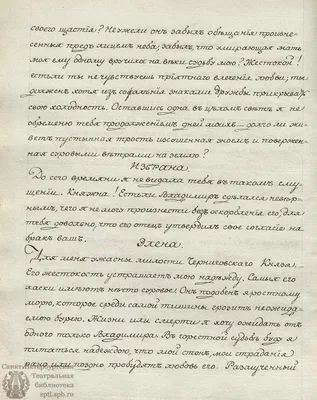 своего щастія? Неужели онъ забылъ обѣщанія произне-
сенныя предъ лицемъ неба; забылъ, что умирающая мать
моя ему одному вручила на вѣки судьбу мою? Жестокой!
естьли ты не чувствуешь пріятнаго влеченія любви; ты
долженъ хотя изъ сожалѣнія знаками дружбы прикрывать
свою холодность. Оставшись одна въ цѣломъ свѣтѣ я не
обременю тебя продолженіемъ дней моихъ — долго ли жи-
ветъ пустынная трость изсошенная зноемъ и повержен-
ная суровыми вѣтрами на землю?
ИЗБРАНА
До сего времяни я не видала тебя въ такомъ сму-
щеніи. Княжна! Естьли Владимиръ здѣлался невѣр-
нымъ, чего я не могу произнести безъ оскорбленія его; для
тебя довольно, что его отецъ утвердилъ свое согласіе на
бракъ вашъ.
Для меня ужасны милости Черниговскаго Князя.
Его жестокость устрашаетъ мою надѣжду. Самыя его
ласки имѣютъ нѣчто суровое: Онъ подобенъ яростному
морю, которое среди самой тишины, грозитъ неожида-
емою бурею. Жизни или смерти я хочу ожидать отъ
одного только Владимира. Въ горестной судьбѣ буду я
питаться надеждою, что мой стонъ, мои страданія
рано или поздно пробудятъ любовь его. Разлученный
Санкт-Петербургская
Театральная
библиотека
sptl.spb.ru